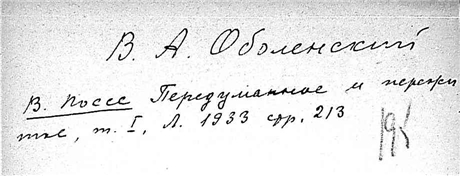 В. А. Оболенский
В. Поссе Передуманное и пережи
тое, т. I, Л. 1933 стр. 213